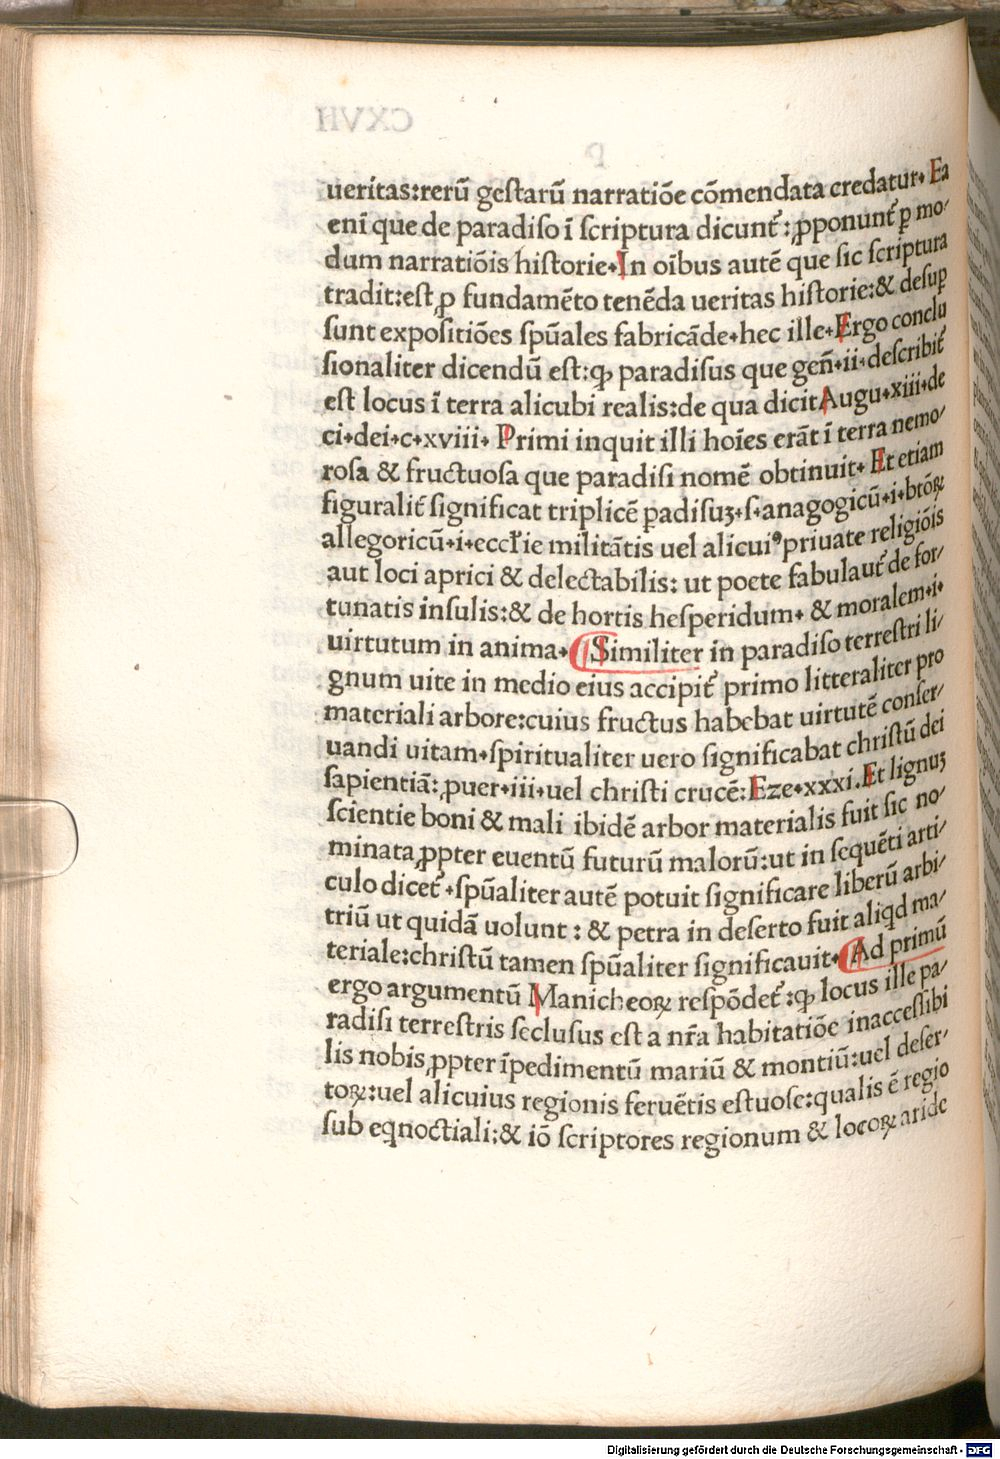 ueritas:rerū gestarū narratiōe cōmendata credatur. Ea
enī que de paradiſo ī ſcriptura dicunt᷑:ꝓponunt᷑ ꝑ mo/
dum narratiōis hiſtorie.In oībus autē que ſic ſcriptura
tradit:eſt ꝓ fundamēto tenēda ueritas hiſtorie:& deſuꝑ
ſunt expoſitiōes ſpūales fabricāde.hec ille.Ergo conclu
ſionaliter dicendū eſt:ꝙ paradiſus que geñ.ii.deſcribit᷑
eſt locus ī terra alicubi realis:de qua dicit Augu.xiii.de
ci.dei.c.xviii. Primi inquit illi hoīes erāt ī terra nemo/
roſa & fructuoſa que paradiſi nomē obtinuit. Et etiam
figuralit᷑ ſignificat triplicē ꝑadiſuꝫ.ſ.anagogicū.i.btōꝝ
allegoricū.i.eccl̄ie militātis uel alicuiꝰ priuate religiōis
aut loci aprici & delectabilis: ut poete fabulaut᷑ de for/
tunatis inſulis:& de hortis heſperidum. & moralem.i.
uirtutum in anima. ¶ Similiter in paradiſo terreſtri li/
gnum uite in medio eius accipit᷑ primo litteraliter pro
materiali arbore:cuius fructus habebat uirtutē conſer/
uandi uitam.ſpiritualiter uero ſignificabat chriſtū dei
ſapientiā:ꝓuer.iii.uel chriſti crucē:Eze.xxxi.Et lignuꝫ
ſcientie boni & mali ibidē arbor materialis fuit ſic no/
minata ꝓpter euentū futurū malorū:ut in ſequēti arti/
culo dicet᷑.ſpūaliter autē potuit ſignificare liberū arbi/
triū ut quidā uolunt : & petra in deſerto fuit aliqd ma/
teriale:chriſtū tamen ſpūaliter ſignificauit. ¶ Ad primū
ergo argumentū Manicheoꝝ reſpōdet᷑:ꝙ locus ille pa/
radiſi terreſtris ſecluſus eſt a nr̄a habitatiōe inacceſſibi
lis nobis ꝓpter īpedimentū mariū & montiū:uel deſer/
toꝝ:uel alicuius regionis feruētis eſtuoſe:qualis ē regio
ſub eqnoctiali:& iō ſcriptores regionum & locoꝝ aride
Digitalisierung gefördert durch die Deutsche Forschungsgemeinschaft - DFG